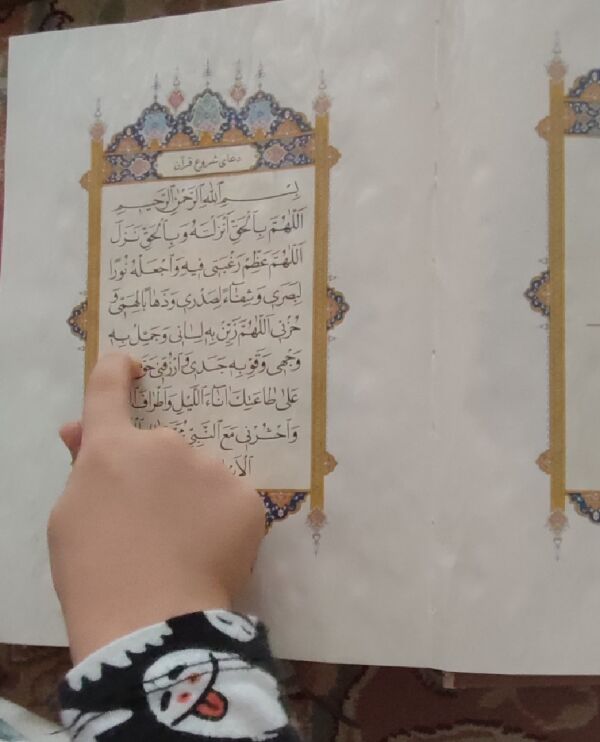 دعای شروع قرآن
بِسْمِ اللهِ الرَّحْمٰنِ الرَّحیمِ
اَللّٰهُمَّ بِالْحَقِّ اَنْزَلْتَهُ وَ بِالْحَقِّ نَزَلَ
اَللّٰهُمَّ عَظِّمْ رَغْبَتی فیهِ وَاجْعَلْهُ نُورًا
لِبَصَری وَ شِفٰاءً لِصَدْری وَ ذَهٰابًا لِهَمّی وَ
حُزْنی اَللّٰهُمَّ زَیِّنْ بِهِ لِسٰانی وَ جَمِّلْ بِهِ
وَجْهی وَ قَوِّ بِهِ جَسَدی وَارْزُقْنی
عَلیٰ طٰاعَتِكَ اٰنٰاءَ اللَّیْلِ وَ
وَاحْشُرْنی مَعَ النَّبِیِّ